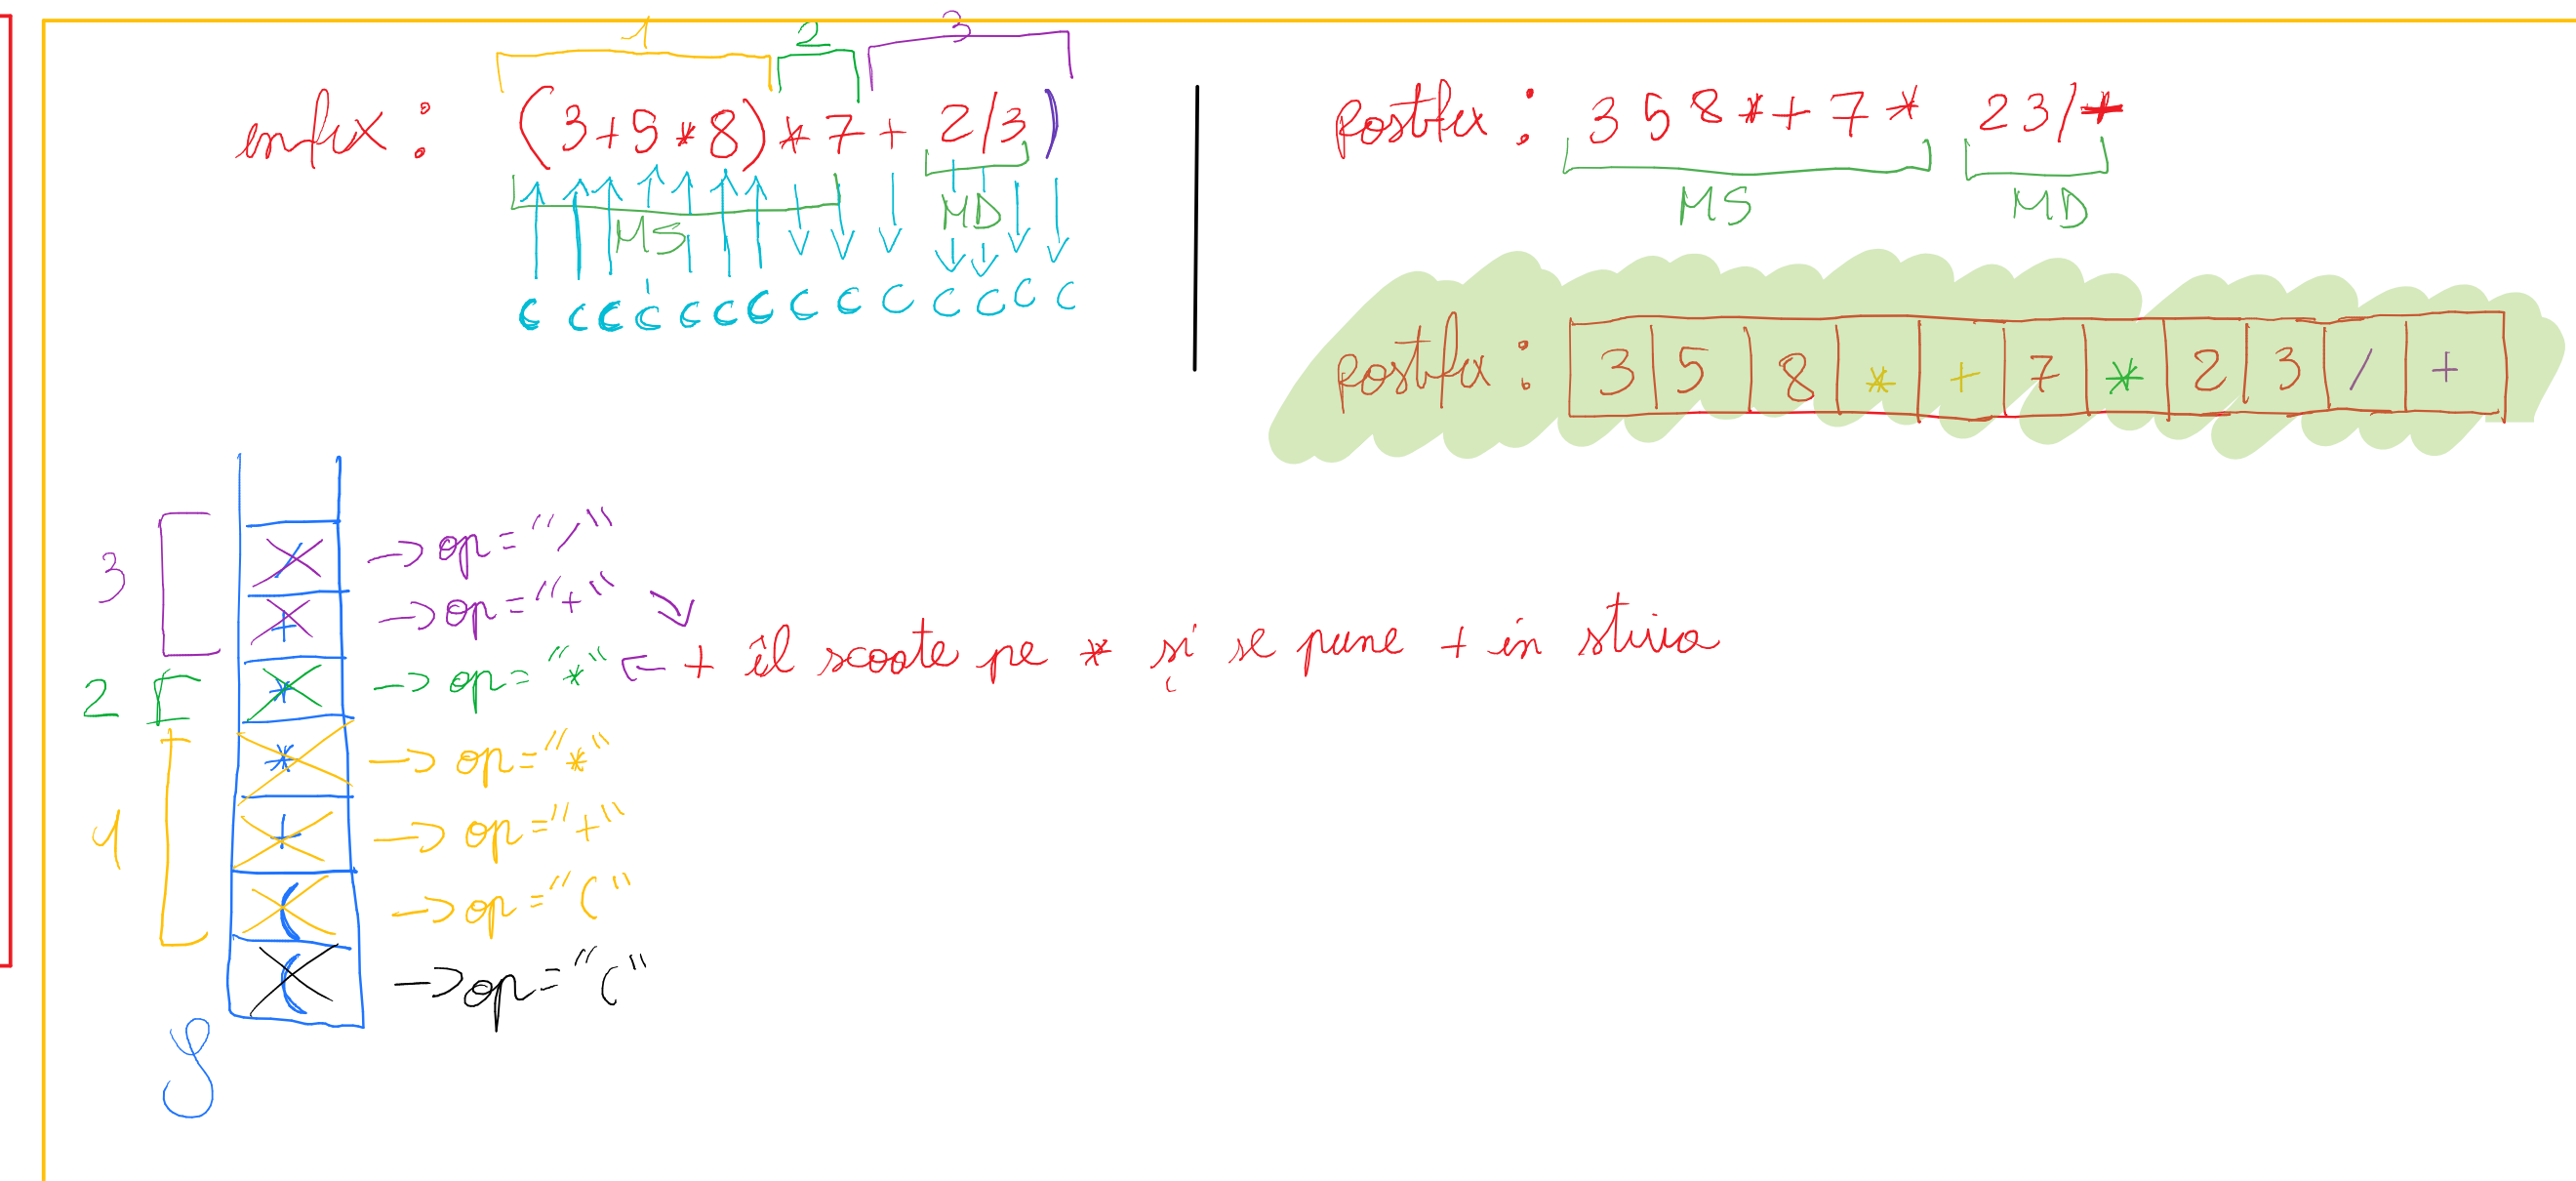 1 2 3
infix : (3+5*8)*7+ 2/3)
MS MD
c c c c c c c c c c c c c c
postfix : 3 5 8 * + 7 * 2 3 / +
MS MD
postfix : 3 5 8 * + 7 * 2 3 / +
3
/ -> op = "/"
+ -> op = "+"
2 * -> op = "*" <- + îl scoate pe * și se pune + in stiva
1
* -> op = "*"
+ -> op = "+"
( -> op = "("
( -> op = "("
S